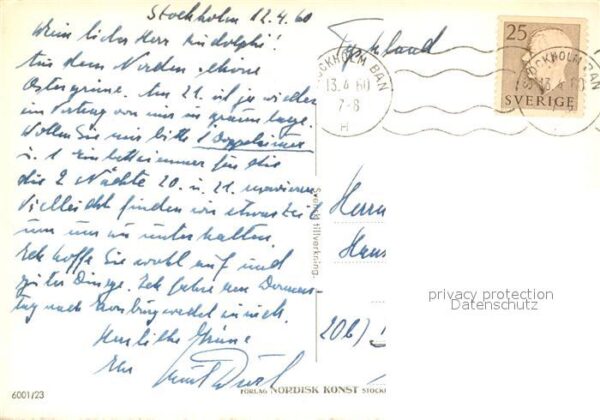 Stockholm 12.4.60
Mein lieber Herr Rudolphi!
Aus dem Norden schöne
Ostergrüsse. Am 21. ist ja wieder
ein Vortrag von mir in
Wollen Sie mir bitte 1 Doppelzimmer
u. 1 Einbettzimmer für die
die 2 Nächte 20. u. 21. reservieren.
Vielleicht finden wir etwas Zeit
um uns zu unterhalten.
Ich hoffe Sie wohl auf und
guter Dinge. Ich fahre am Donners-
tag nach zurück.
Herzliche Grüsse
Ihr
Tyskland
STOCKHOLM BAN
13.4.60
7-8
H
25
SVERIGE
STOCKHOLM BAN
13.4.60
Herrn
Hans
20b)
Svensk tillverkning.
privacy protection
Datenschutz
6001/23
FÖRLAG NORDISK KONST STOCK